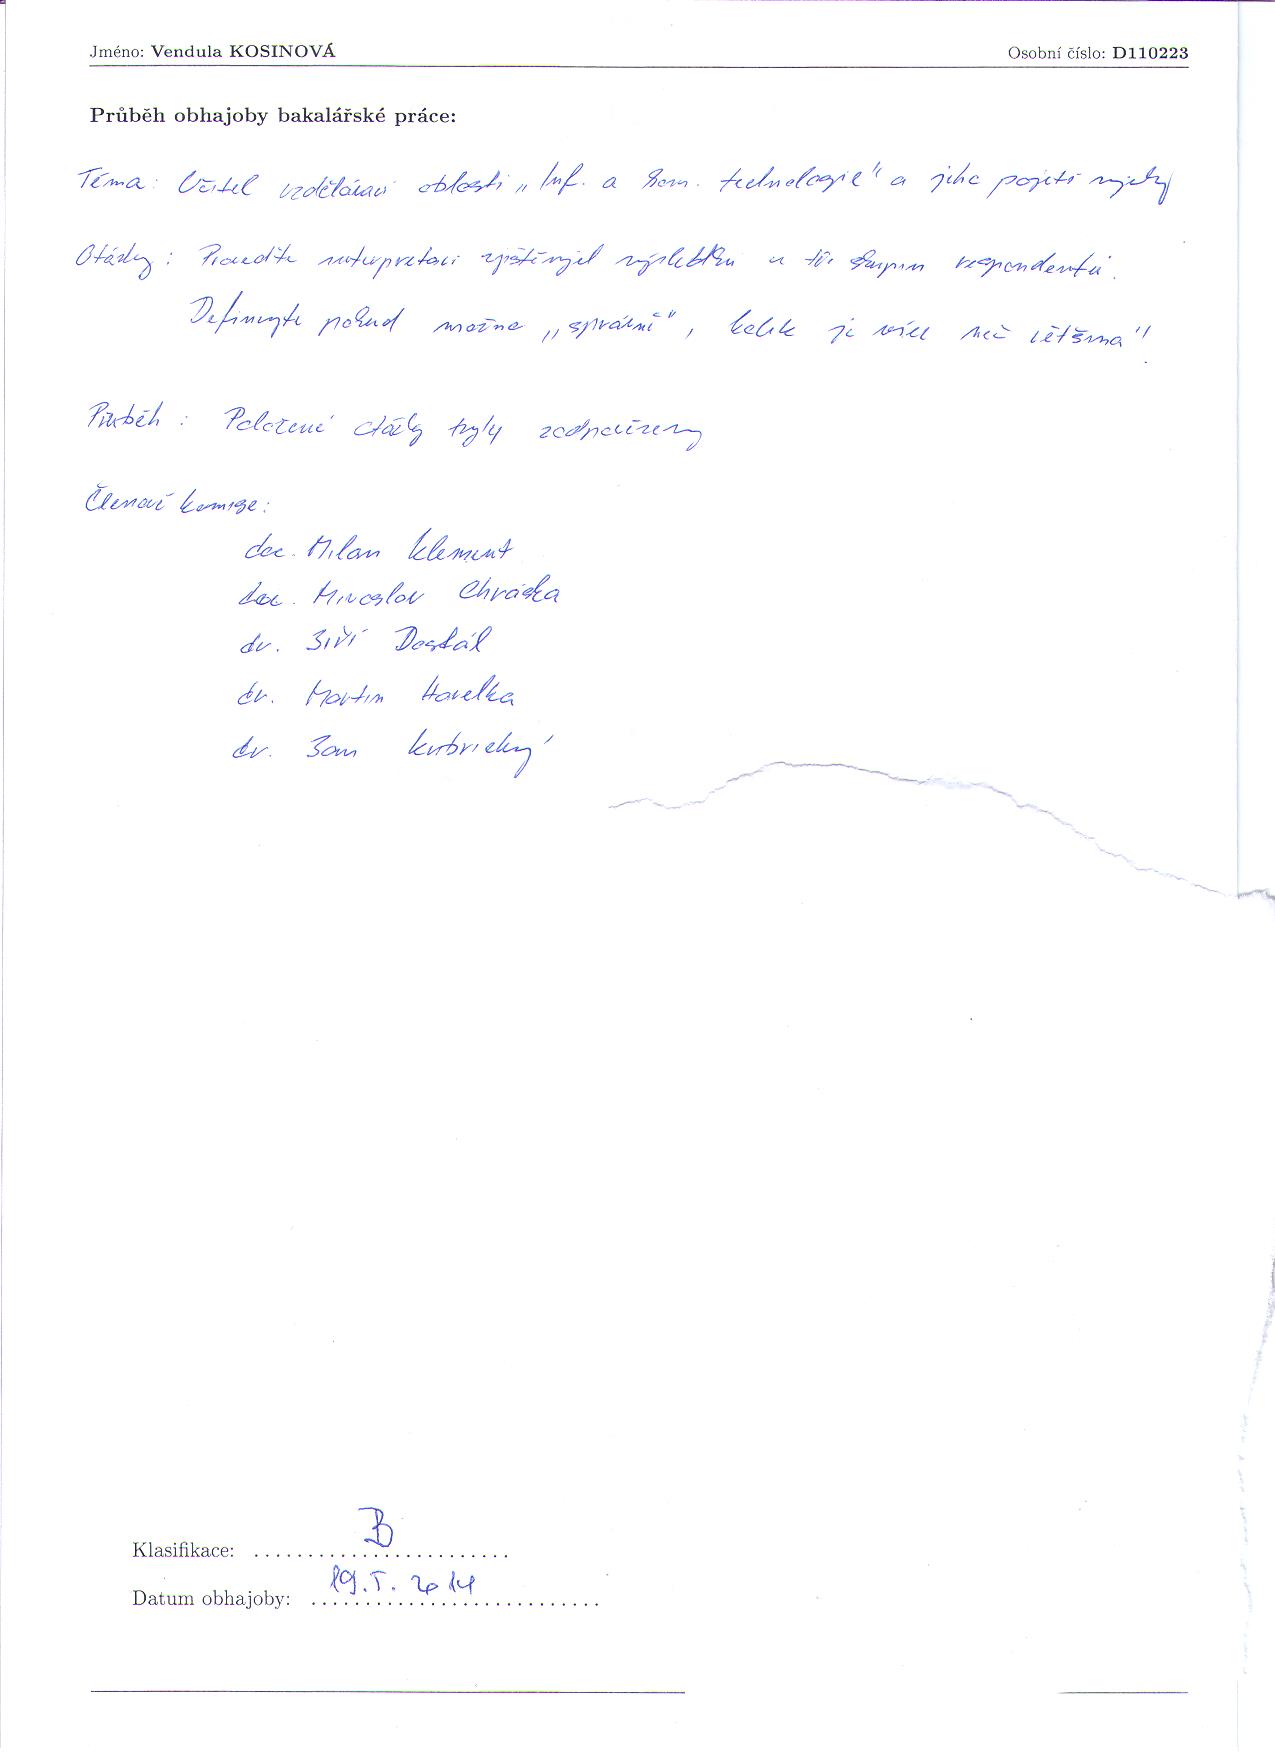 Jméno: Vendula KOSINOVÁ Osobní číslo: D110223
Průběh obhajoby bakalářské práce:
Téma: Učitel vzdělávací oblasti „Inf. a kom. technologie" a jeho pojetí výuky
Otázky: Proveďte interpretaci zjištěných výsledků u tří skupin respondentů.
Definujte pokud možno „správně", kolik je více než většina"
Průběh: Položené otázky byly zodpovězeny
Členové komise:
doc. Milan Klement
doc. Miroslav Chráska
dr. Jiří Dostál
dr. Martin Havelka
dr. Jan Kubrický
Klasifikace: B
Datum obhajoby: 19. 5. 2014